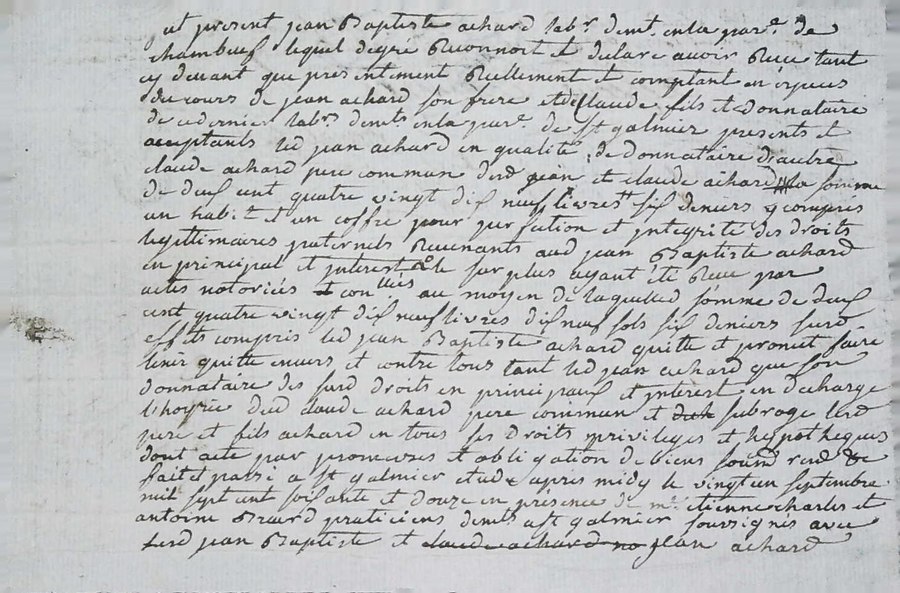 fut present jean Baptiste achard labr. demt. en la parre. de
chambeuf lequel degré Reconnoit et declare avoir Reçu tant
cy devant que presentement Reellement et comptant en especes
du cours de jean achard son frere et de claude fils et donnataire
de ce dernier labrs. demts. en la parre. de st galmier presents et
acceptants led jean achard en qualité de donnataire d'autre
claude achard pere commun desd jean et claude achard la somme
de deux cent quatre vingt dix neuf livres six deniers y compris
un habit et un coffre pour perfection et integrité des droits
legittimaires paternels Revenants aud jean Baptiste achard
en principal et interest le surplus ayant été Reçu par
actes notoriés et con lles au moyen de laquelled somme de deux
cent quatre vingt dix neuf livres dix neuf sols six deniers surd
effets compris led jean Baptiste achard quitte et promet faire
tenir quitte envers et contre tous tant led jean achard que son
donnataire des surd droits en principaux et interest en decharge
l'hoyrie dud claude achard pere commun et subroge lesd
pere et fils achard en tous ses droits privileges et hypotheques
dont acte par promesses et obligation de biens soumd rend &c
fait et passé a st galmier etude apres midy le vingt un septembre
mil sept cent soixante et douze en présence de me. etienne charles et
antoine Beard praticiens demts a st galmier soussignés avec
lesd jean Baptiste et claude achard no jean achard